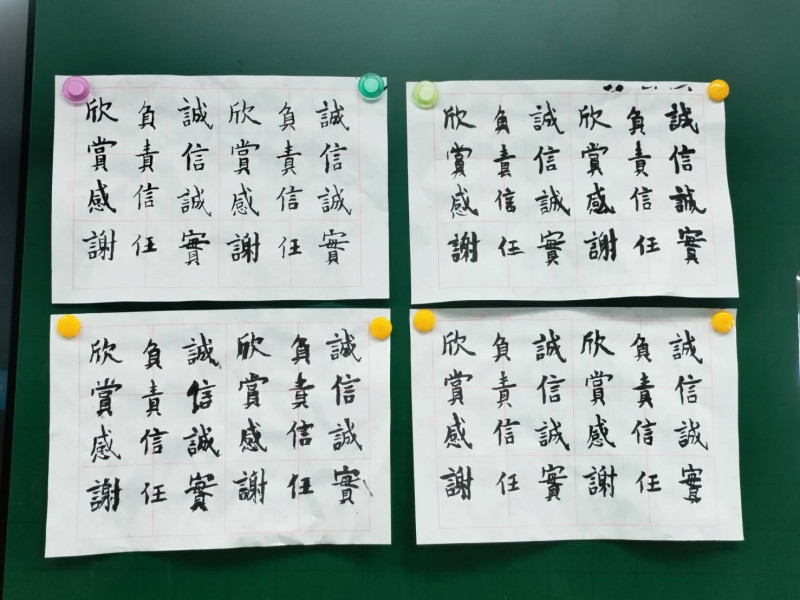 誠信誠實
負責信任
欣賞感謝
誠信誠實
負責信任
欣賞感謝
誠信誠實
負責信任
欣賞感謝
誠信誠實
負責信任
欣賞感謝
誠信誠實
負責信任
欣賞感謝
誠信誠實
負責信任
欣賞感謝
誠信誠實
負責信任
欣賞感謝
誠信誠實
負責信任
欣賞感謝